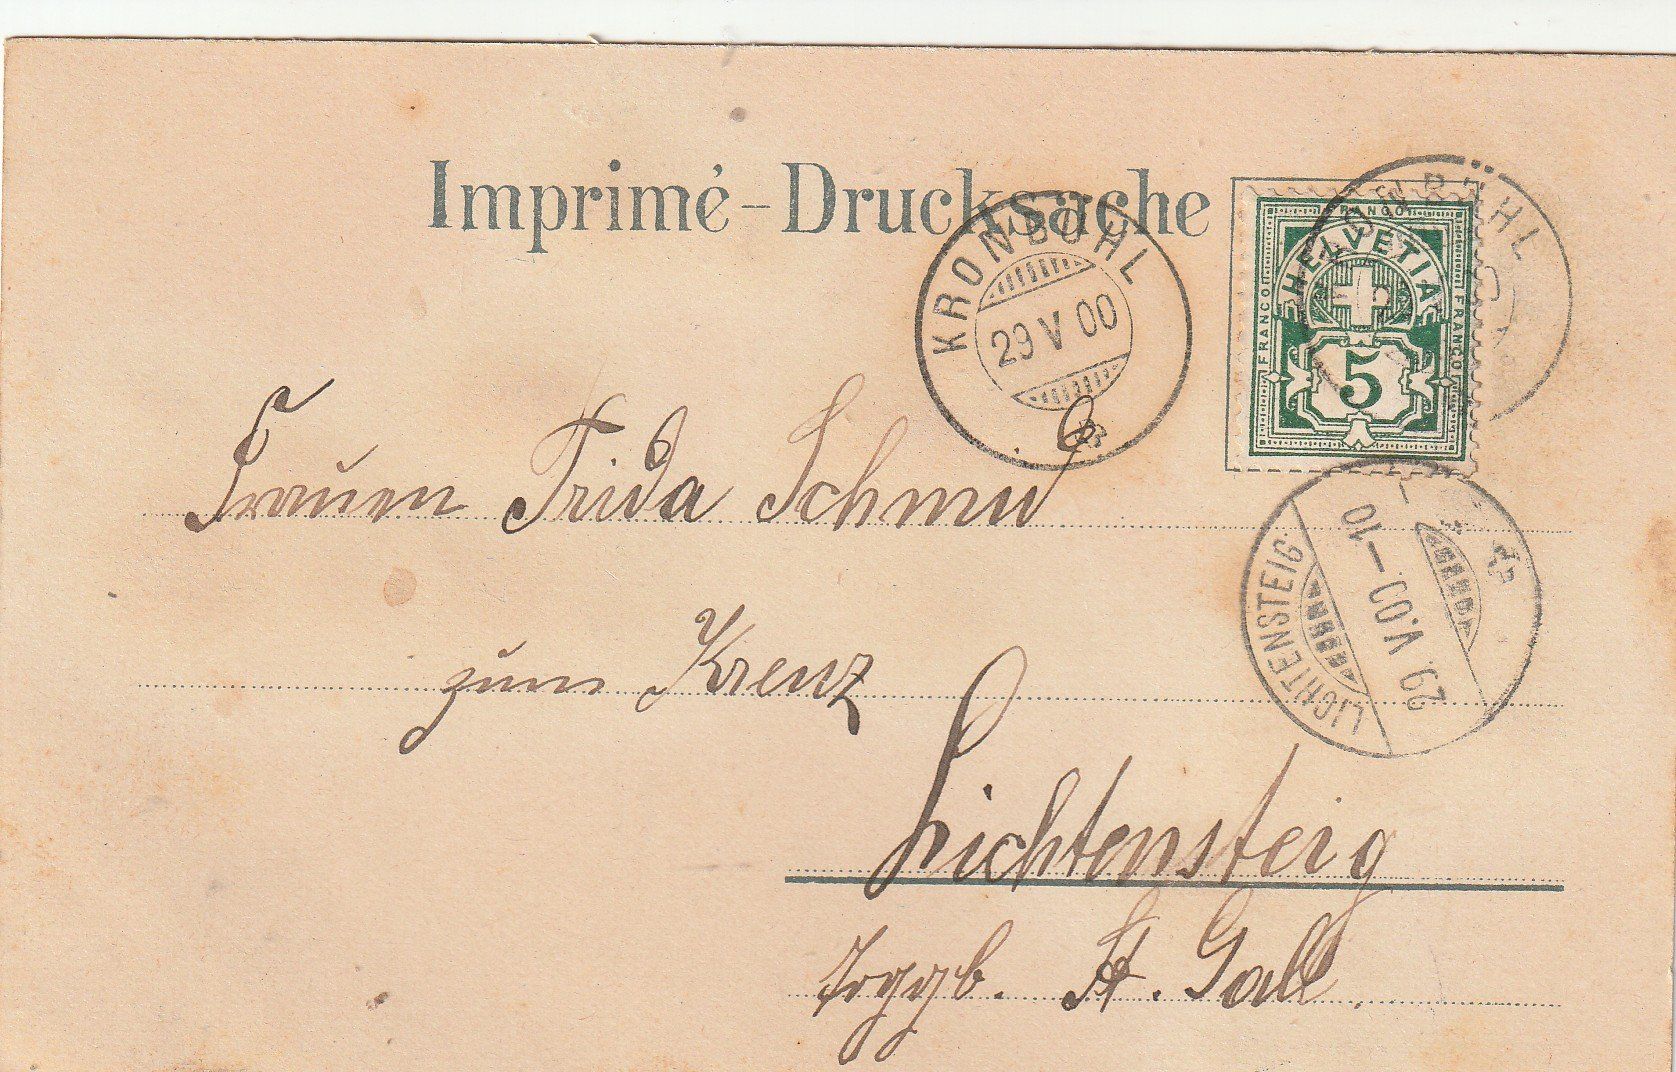 Imprimé-Drucksache
KRONBÜHL
29 V 00
KRONBÜHL
FRANCO
HELVETIA
FRANCO
FRANCO
5
Frauen Frida Schmid
LICHTENSTEIG
29. V. 00.–10
zum Kreuz
Lichtensteig
Toggb. St. Gall.